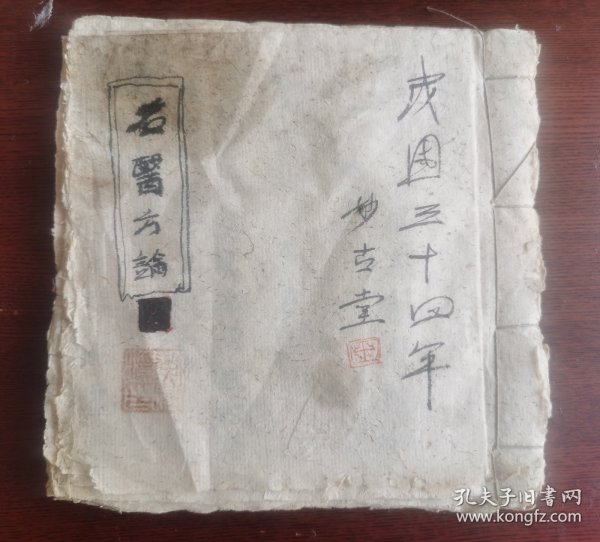 民国三十四年
妙古堂
名醫方論
孔夫子旧书网
www.kongfz.com